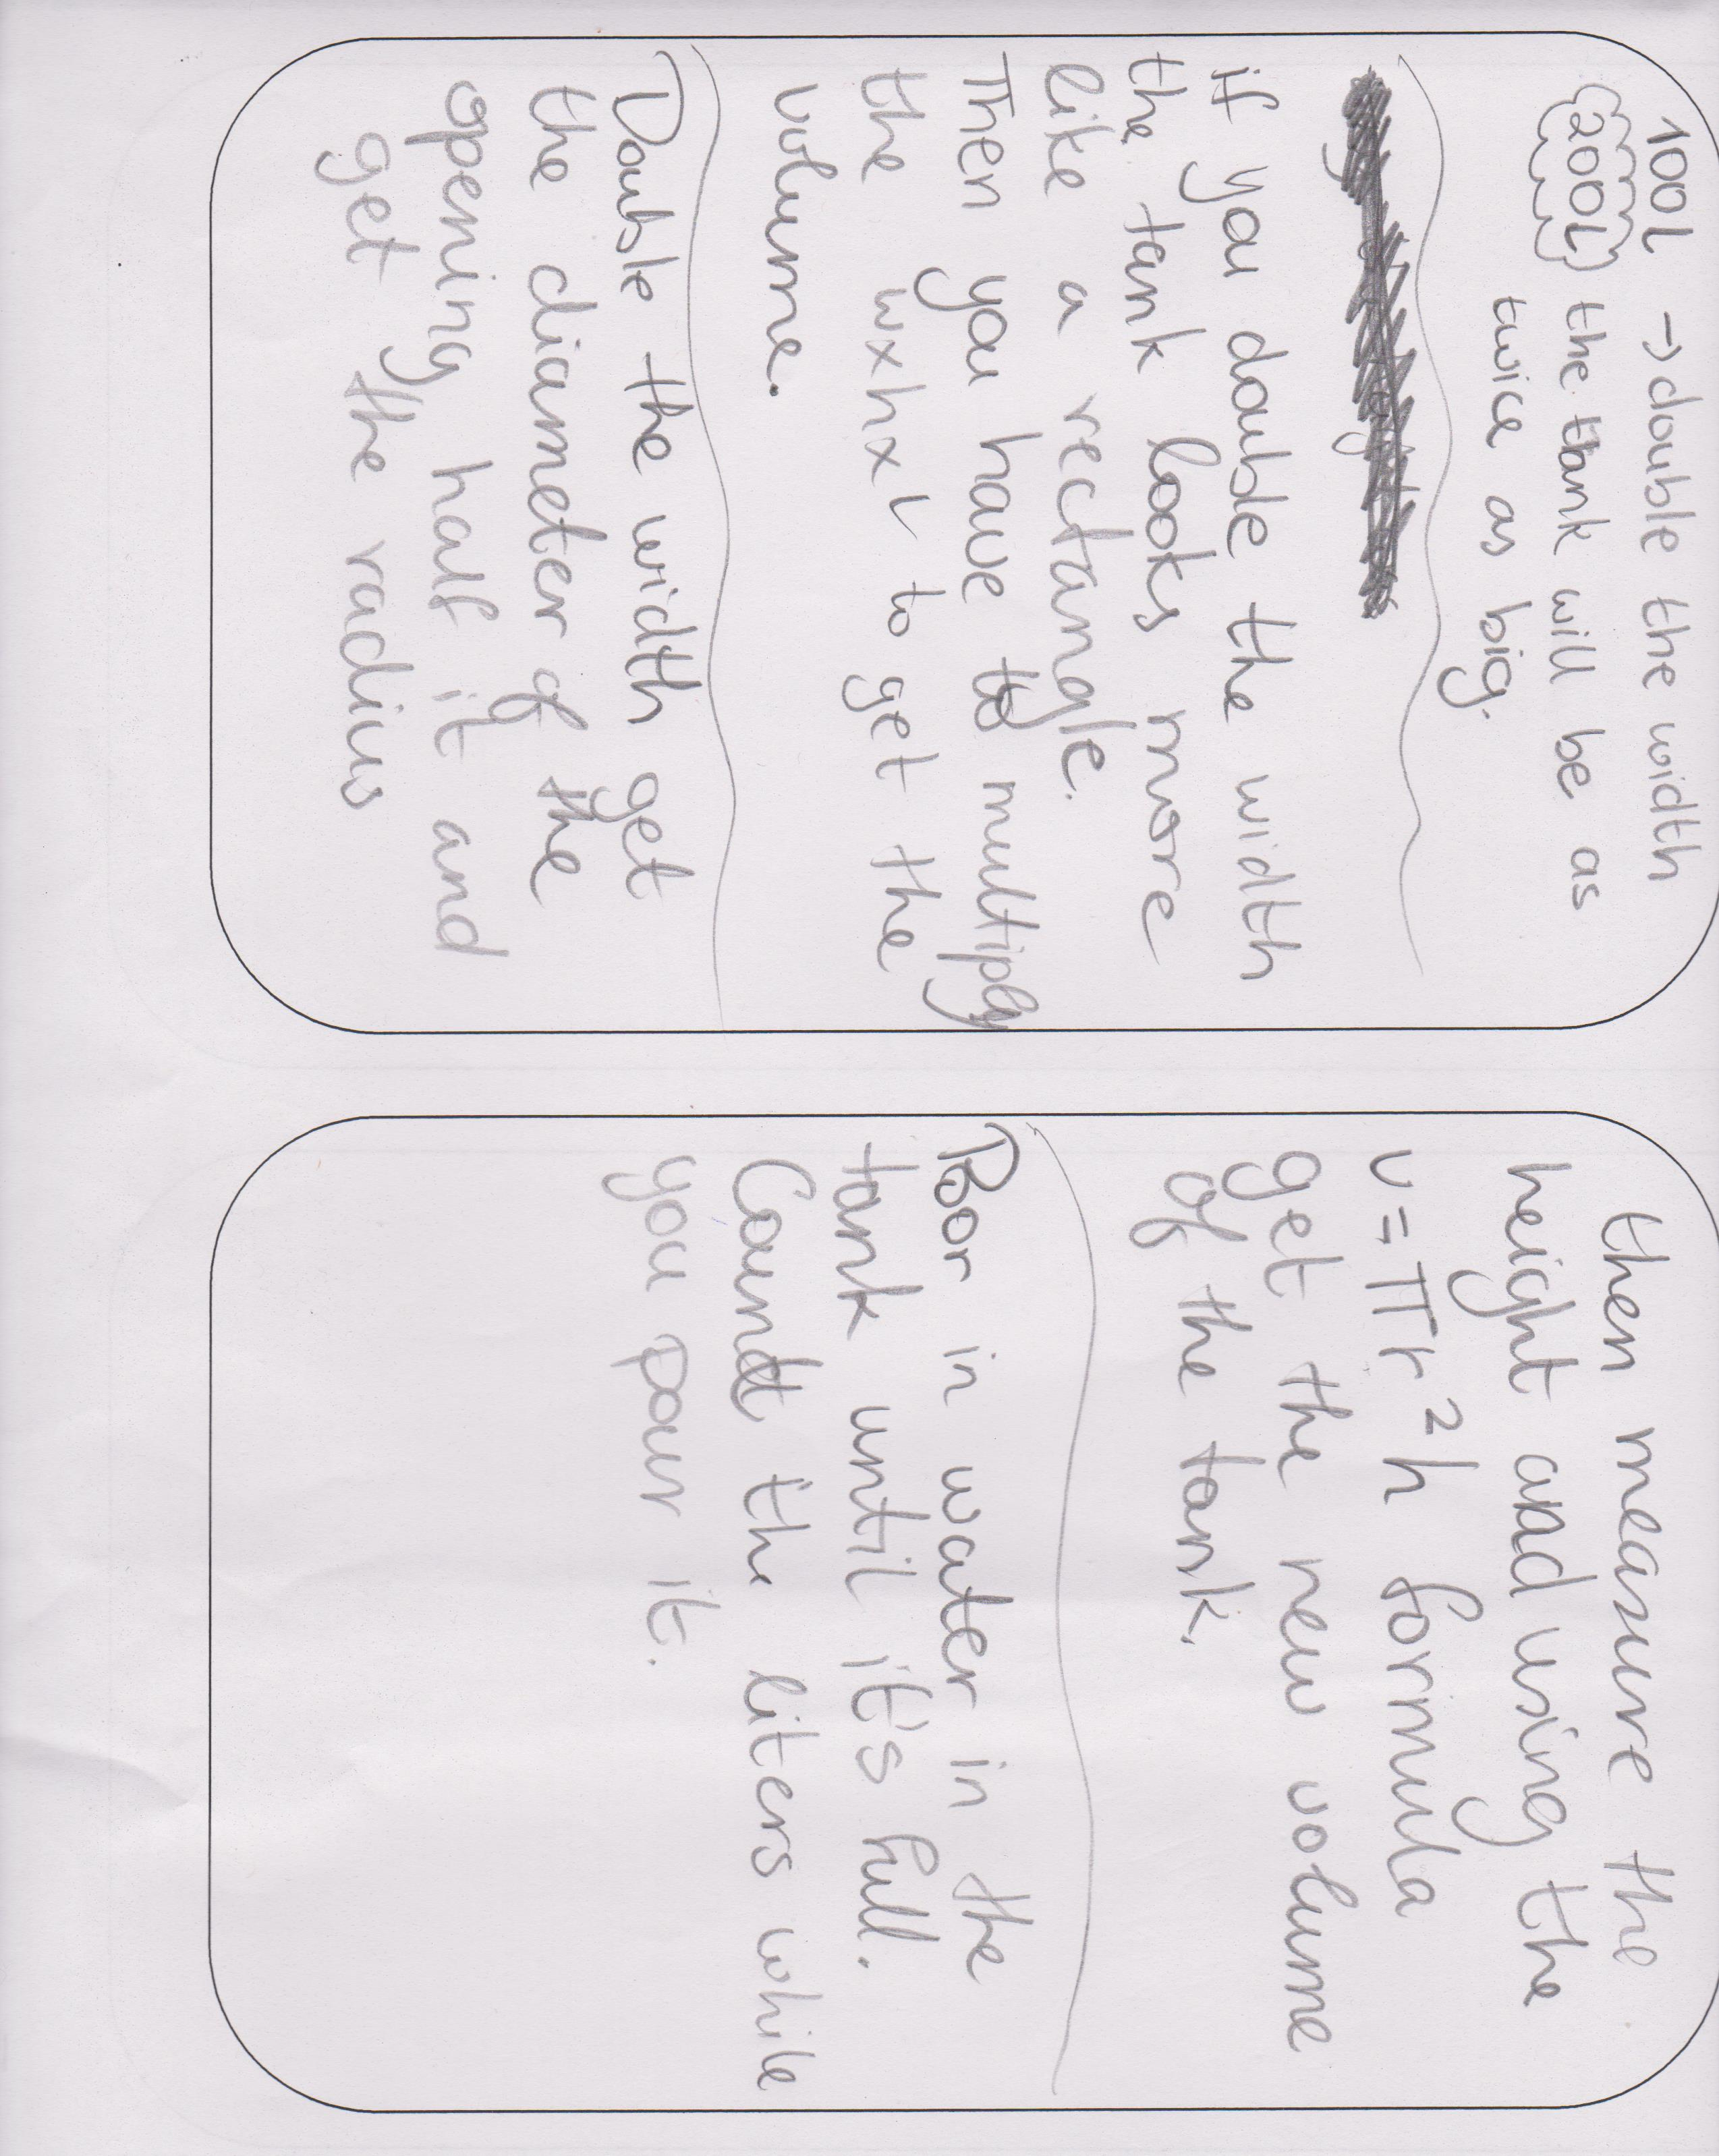 100L → double the width
200L the tank will be as
twice as big.
if you double the width
the tank looks more
like a rectangle.
Then you have to multiply
the wxhxL to get the
volume.
Double the width get
the diameter of the
opening half it and
get the radius
then measure the
height and using the
v=πr²h formula
get the new volume
of the tank.
Poor in water in the
tank until it's full.
Count the liters while
you pour it.